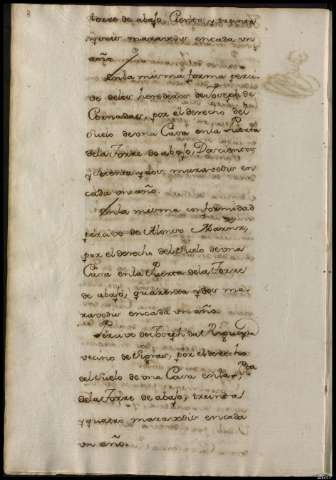 torre de abajo, Ciento, y
maravedis en cada un
año.
En la misma forma perci-
vo de los herederos de Joseph de
por el derecho del
suelo de una Casa en la Puerta
de la Torre de abajo, Doscientos
y treinta y dos, maravedis en
cada un año.
En la misma conformidad
percivo de Alonso
por el derecho del suelo de una
Casa en la Puerta de la Torre
de abajo, quarenta y dos ma-
ravedis en cada un año.
Percivo de Joseph del
vecino de por el derecho
del suelo de una Casa en la
de la Torre de abajo, treinta
y quatro maravedis en cada
un año.